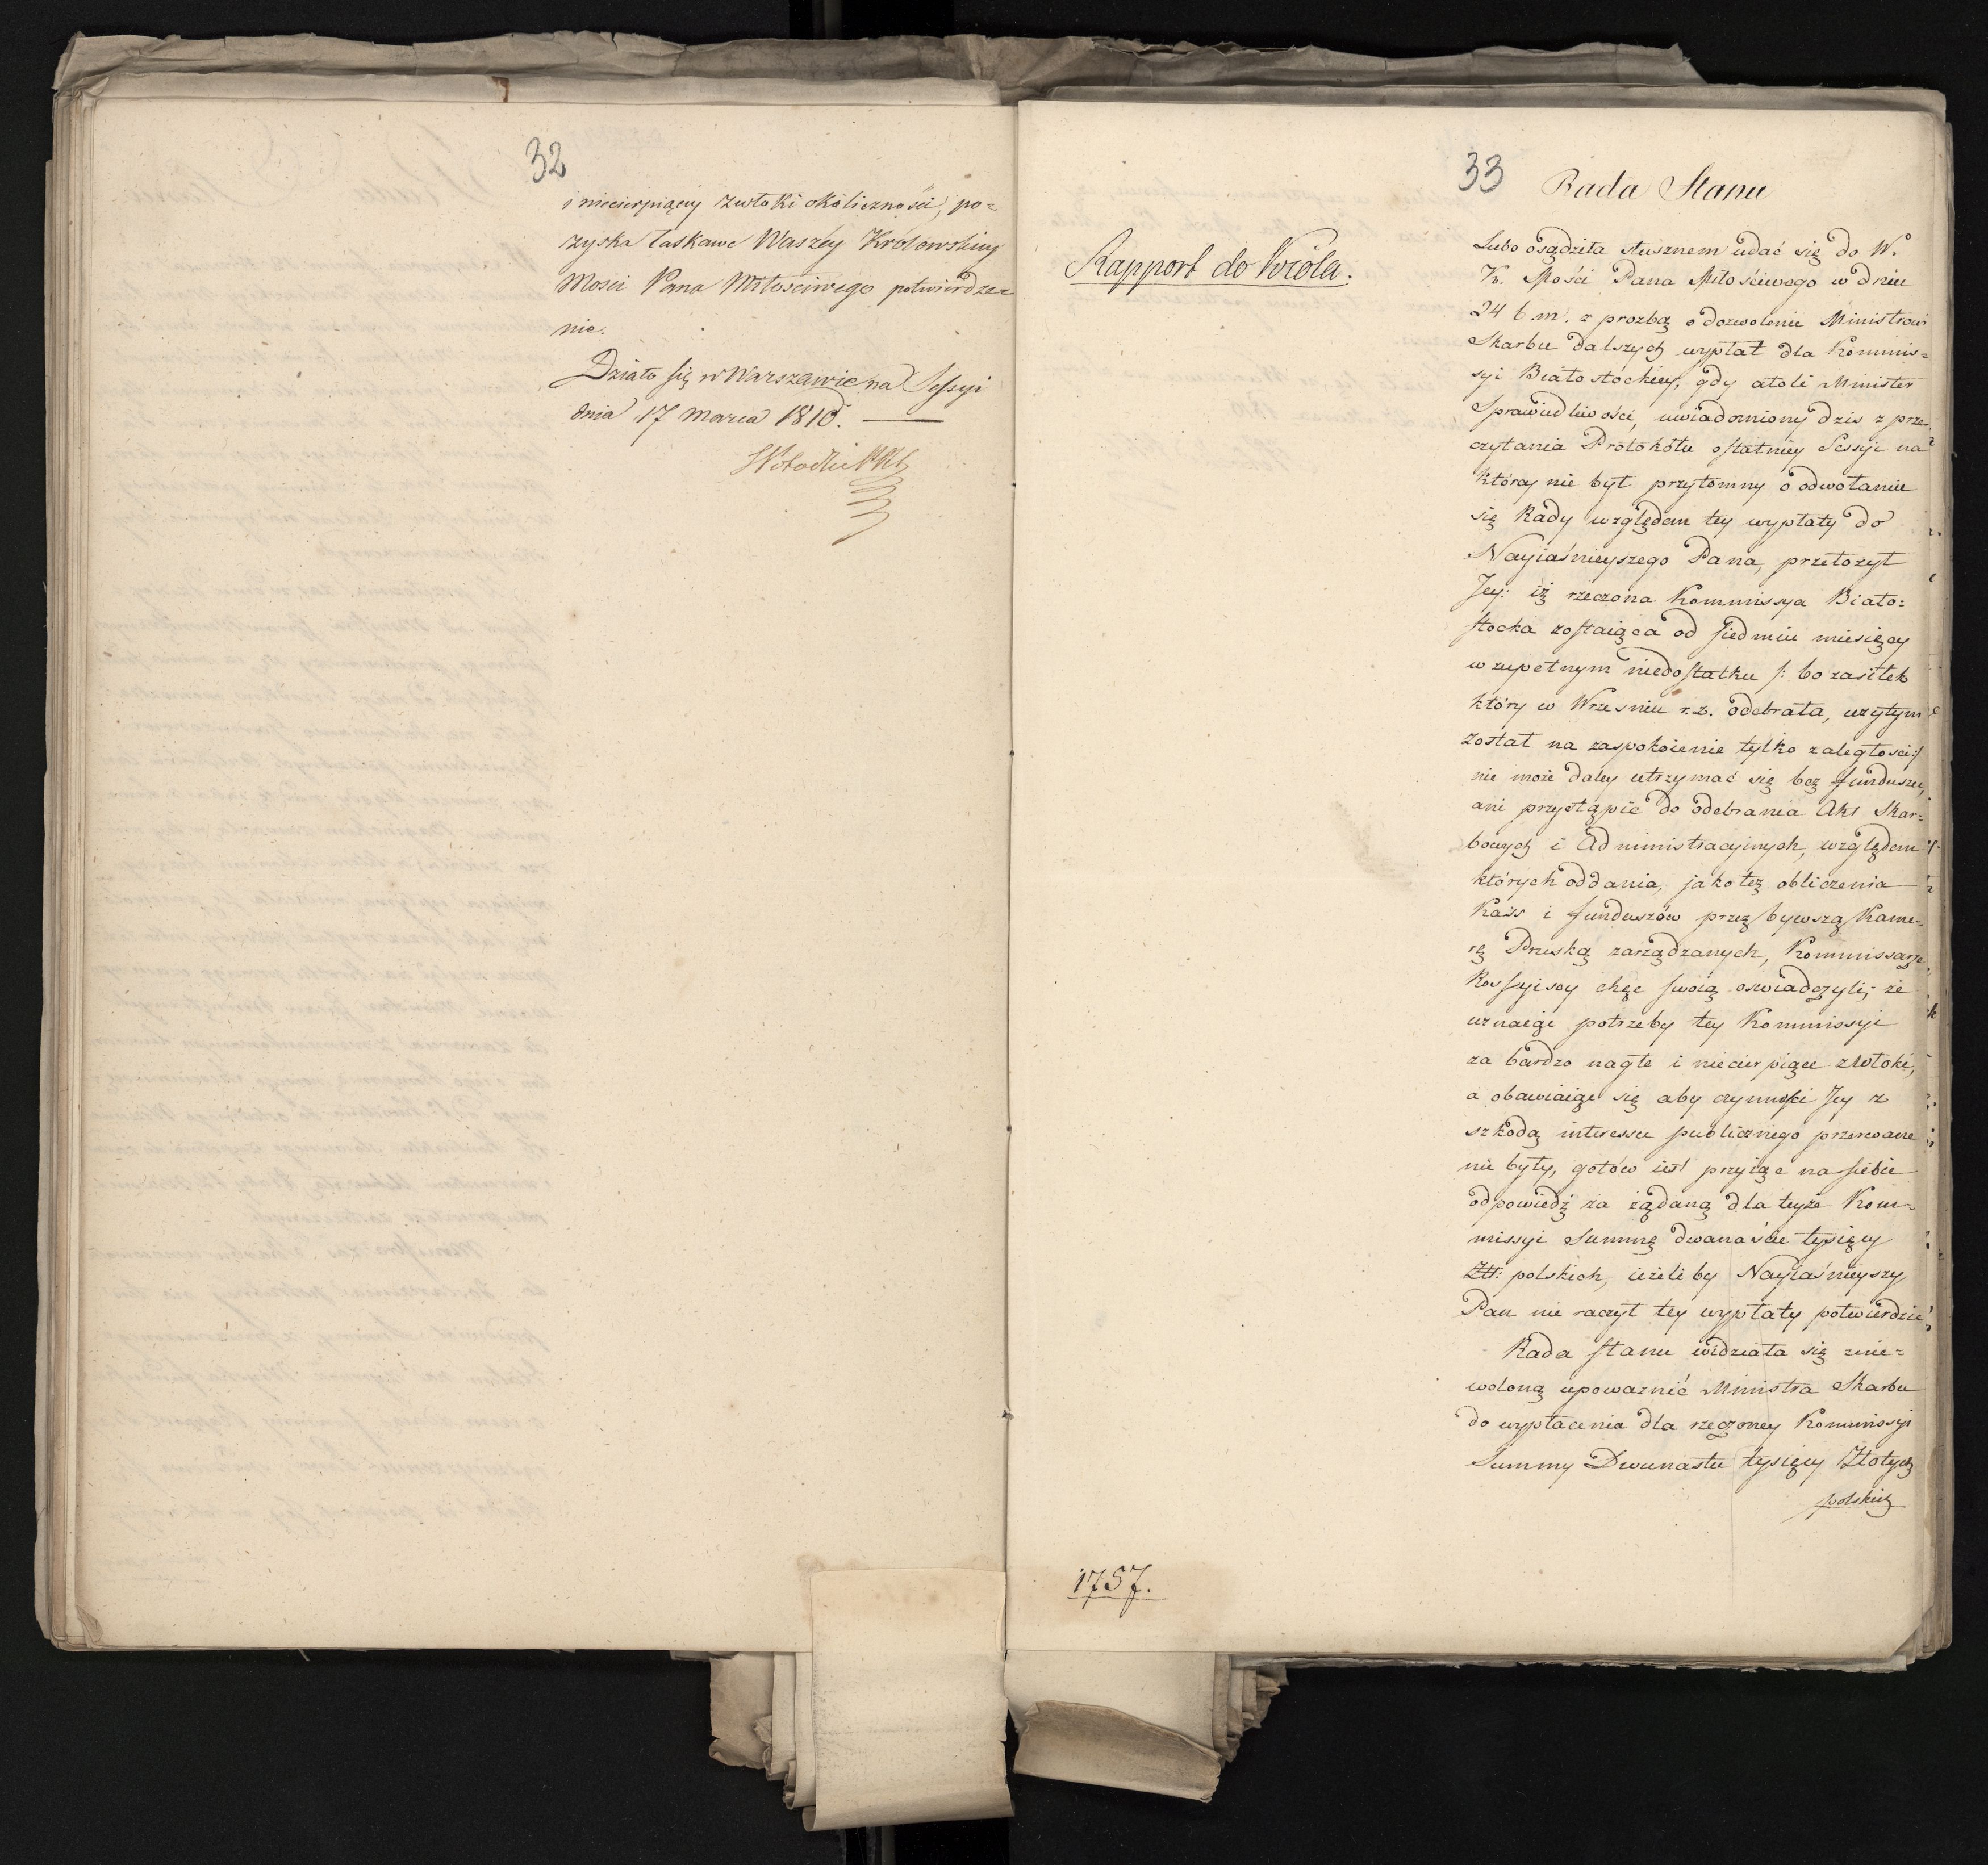 32
i niecierpiącey zwłoki okoliczności, po=
zyska łaskawe Waszéy Królewskiey
Mości Pana Miłościwego potwierdze=
nie.
Działo się w Warszawie na Sessyi
dnia 17 Marca 1810. —
33
Rada Stanu
Rapport do Króla.
Lubo osądziła słusznem udać się do W.
K. Mości Pana Miłościwego w dniu
24 b. m. z prozbą o dozwolenie Ministrowi
Skarbu dalszych wypłat dla Kommis=
syi Białostóckiey, gdy atoli Minister
Sprawiedliwości, uwiadomiony dzis z prze=
czytania Protokółu ostatniey Sessyi na
któréy nie był przytomny o odwołaniu
się Rady względem tey wypłaty do
Nayiaśnieyszego Pana, przełożył
Jey: iż rzeczona Kommissya Biało=
stocka zostaiąca od siedmiu miesięcy
w zupełnym niedostatku /: bo zasiłek
który w Wrzesniu r. z. odebrała, użytym
został na zaspokoienie tylko zaległości :/
nie może daley utrzymać się bez funduszu,
ani przystąpić do odebrania Akt Skar=
bowych i Administracyinych, względem
których oddania, jako też obliczenia
Kass i funduszów przez bywszą Kame=
rę Pruską zarządzanych, Kommissarze
Rossyiscy chęć swoią oswiadczyli; że
uznaiąc potrzeby tey Kommissyi
za bardzo nagłe i niecierpiące zwłoki,
a obawiaiąc się aby czynności Jey z
szkodą interessu publicznego przerwane
nie były, gotów iest przyiąć na siebie
odpowiedź za żądaną dla teyże Kom=
missyi Summę dwanaście tysięcy
Złł: polskich, ieżeliby Nayiaśnieyszy
Pan nie raczył tey wypłaty potwierdzić,
Rada Stanu widziała się znie=
woloną upoważnić Ministra Skarbu
do wypłacenia dla rzeczoney Kommissyi
Summy Dwunastu tysięcy Złotych
polskich
1757.